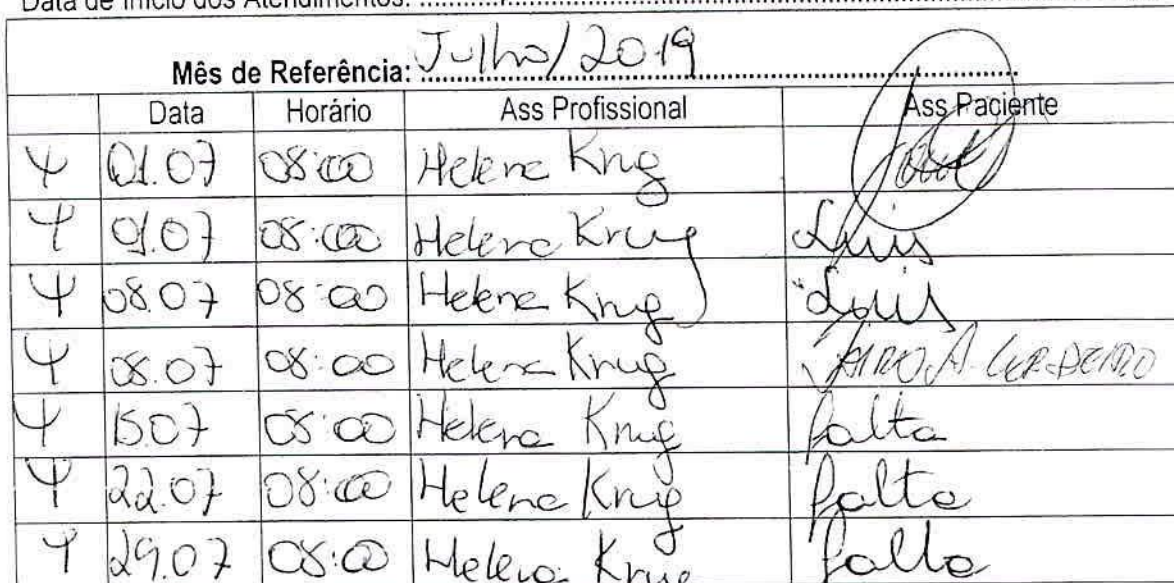 Data de Início dos Atendimentos:
Mês de Referência: Julho/2019
Data Horário Ass Profissional Ass Paciente
Ψ 01.07 08:00 Helena Krug
Ψ 01.07 08:00 Helena Krug Luis
Ψ 08.07 08:00 Helena Krug Luis
Ψ 08.07 08:00 Helena Krug
Ψ 15.07 08:00 Helena Krug falta
Ψ 22.07 08:00 Helena Krug falta
Ψ 29.07 08:00 Helena Krug falta